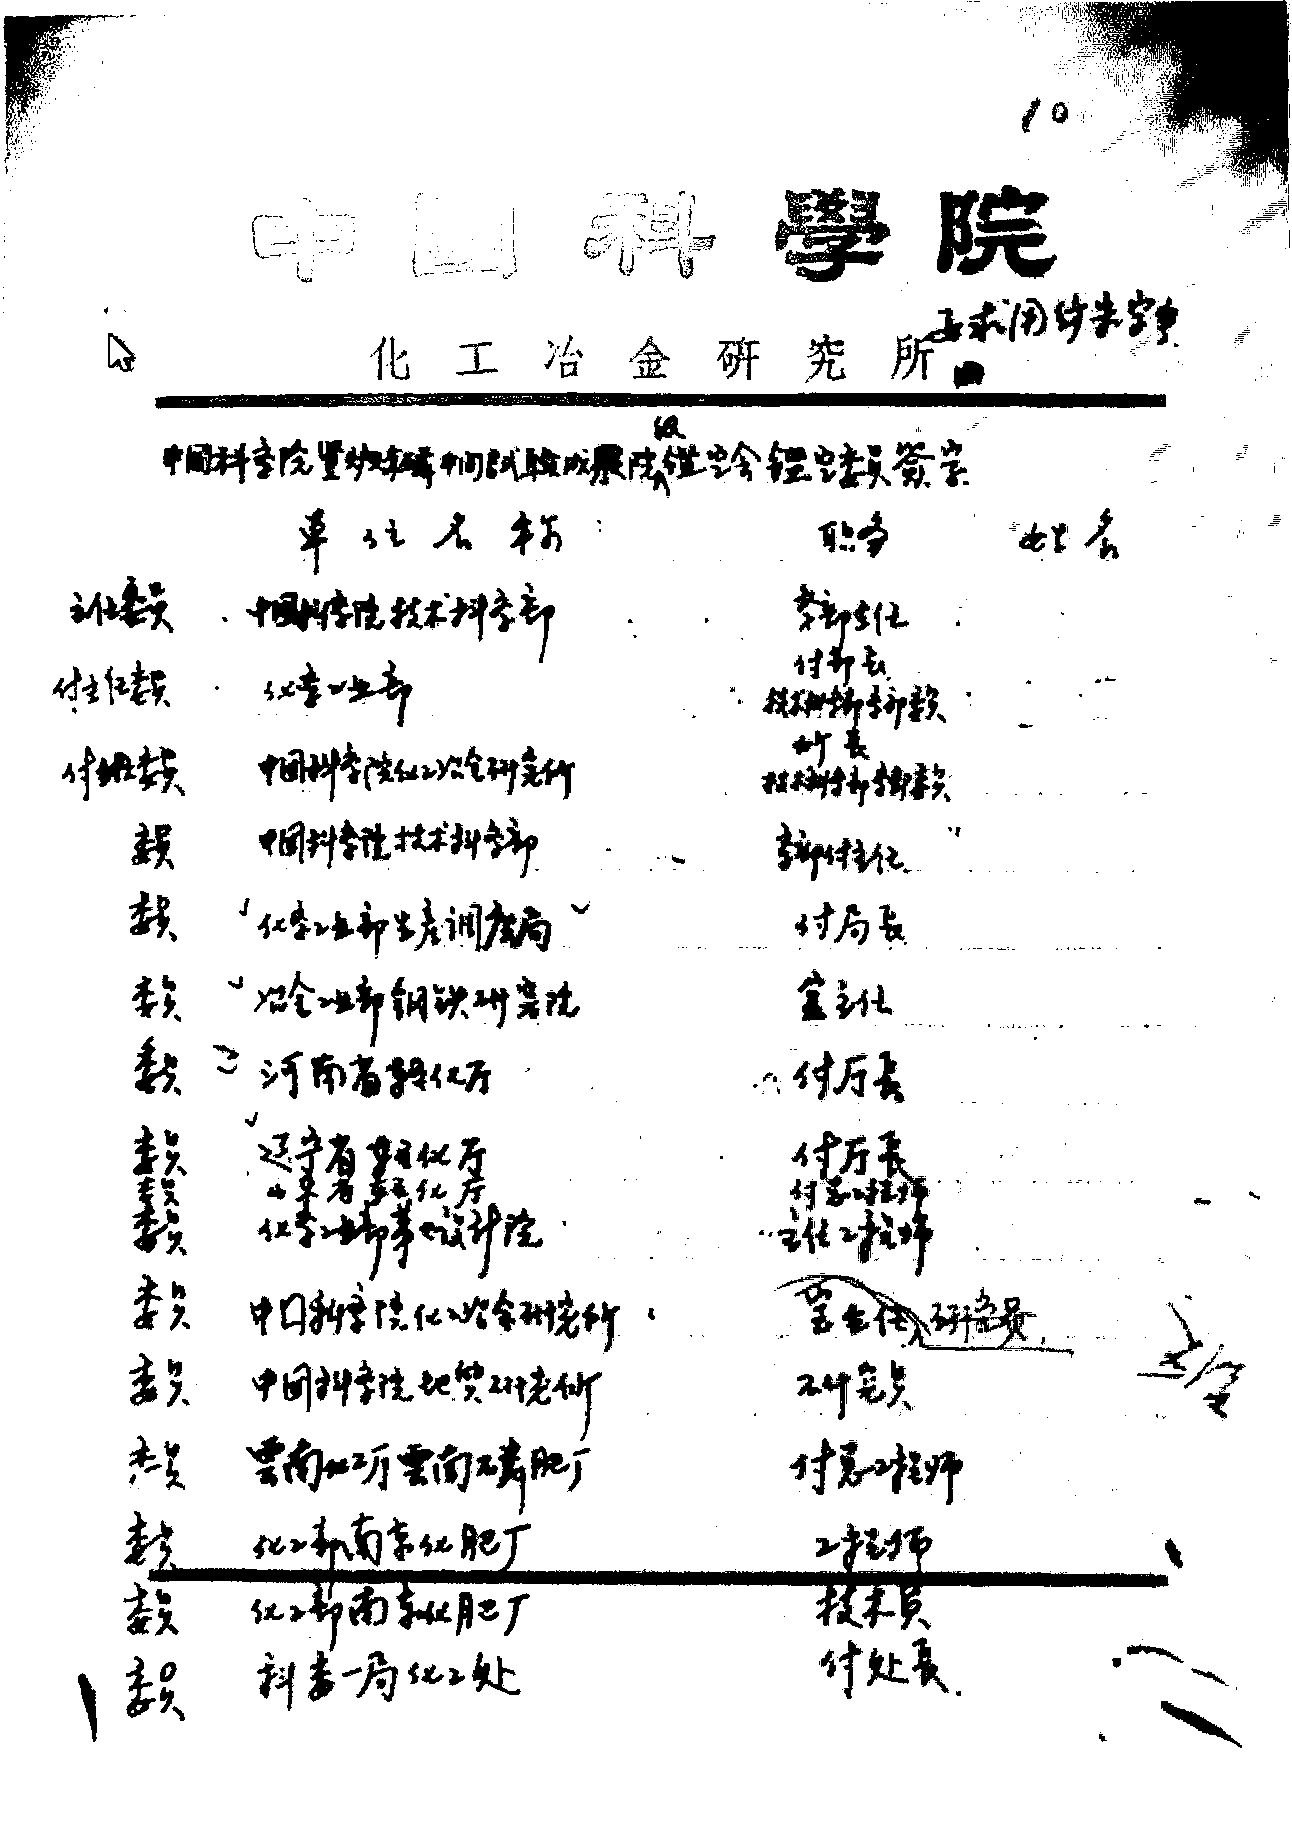 10
中国科學院
要求用
化工冶金研究所
中国科学院竖炉炼磷中间试驗成果院级鑑定会鑑定委员簽字
單位名称 职务 姓名
主任委员 中国科学院技术科学部 学部主任
付主任委员 化学工业部 付部長
技术科学部学部委员
付主任委员 中国科学院化工冶金研究所 所長
技术科学部学部委员
委员 中国科学院技术科学部 学部付主任
委员 化学工业部生产调度局 付局長
委员 冶金工业部钢铁研究院 室主任
委员 河南省石化厅 付厅長
委员 辽宁省石化厅 付厅長
委员 山东省石化厅 付总工程师
委员 化学工业部第七设计院 主任工程师
委员 中国科学院化工冶金研究所 室主任 研究员
委员 中国科学院地質研究所 研究员
委员 雲南化工厅雲南磷肥厂 付总工程师
委员 化工部南京化肥厂 工程师
委员 化工部南京化肥厂 技术员
委员 科委一局化工处 付处長